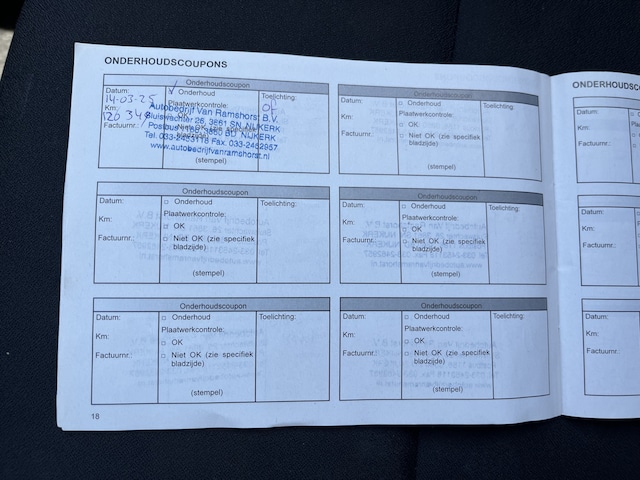 ONDERHOUDSCOUPONS
Onderhoudscoupon
Datum:
14-03-25
Km:
120 34
Factuurnr.:
Onderhoud
Plaatwerkcontrole:
OK
Niet OK (zie specifiek
bladzijde)
(stempel)
Toelichting:
Autobedrijf Van Ramshorst B.V.
Sluiswachter 26, 3861 SN NIJKERK
Postbus 1159, 3860 BD NIJKERK
Tel. 033-2453118 Fax. 033-2462957
www.autobedrijfvanramshorst.nl
Onderhoudscoupon
Datum:
Km:
Factuurnr.:
Onderhoud
Plaatwerkcontrole:
OK
Niet OK (zie specifiek
bladzijde)
(stempel)
Toelichting:
Onderhoudscoupon
Datum:
Km:
Factuurnr.:
Onderhoud
Plaatwerkcontrole:
OK
Niet OK (zie specifiek
bladzijde)
(stempel)
Toelichting:
Onderhoudscoupon
Datum:
Km:
Factuurnr.:
Onderhoud
Plaatwerkcontrole:
OK
Niet OK (zie specifiek
bladzijde)
(stempel)
Toelichting:
Onderhoudscoupon
Datum:
Km:
Factuurnr.:
Onderhoud
Plaatwerkcontrole:
OK
Niet OK (zie specifiek
bladzijde)
(stempel)
Toelichting:
Onderhoudscoupon
Datum:
Km:
Factuurnr.:
Onderhoud
Plaatwerkcontrole:
OK
Niet OK (zie specifiek
bladzijde)
(stempel)
Toelichting:
18
ONDERHOUDSC
Datum:
Km:
Factuurnr.:
Datum:
Km:
Factuurnr.:
Datum:
Km:
Factuurnr.: